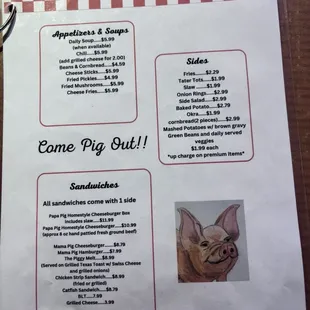 Appetizers & Soups
Daily Soup.....$5.99
(when available)
Chili.....$5.99
(add grilled cheese for 2.00)
Beans & Cornbread.....$4.59
Cheese Sticks.....$5.99
Fried Pickles.....$4.99
Fried Mushrooms.....$5.99
Cheese Fries.....$5.99
Sides
Fries.....$2.29
Tater Tots.....$1.99
Slaw......$1.99
Onion Rings.....$2.99
Side Salad.....$2.99
Baked Potato.....$2.79
Okra.....$1.99
cornbread(2 pieces).....$2.99
Mashed Potatoes w/ brown gravy
Green Beans and daily served
veggies
$1.99 each
*up charge on premium items*
Come Pig Out!!
Sandwiches
All sandwiches come with 1 side
Papa Pig Homestyle Cheeseburger Box
includes slaw.....$11.99
Papa Pig Homestyle Cheeseburger.....$10.99
(approx 8 oz hand pattied fresh ground beef)
Mama Pig Cheeseburger.....$8.79
Mama Pig Hamburger.....$7.99
The Piggy Melt.....$8.99
(Served on Grilled Texas Toast w/ Swiss Cheese
and grilled onions)
Chicken Strip Sandwich.....$8.99
(fried or grilled)
Catfish Sandwich.....$8.79
BLT.....7.99
Grilled Cheese.....3.99